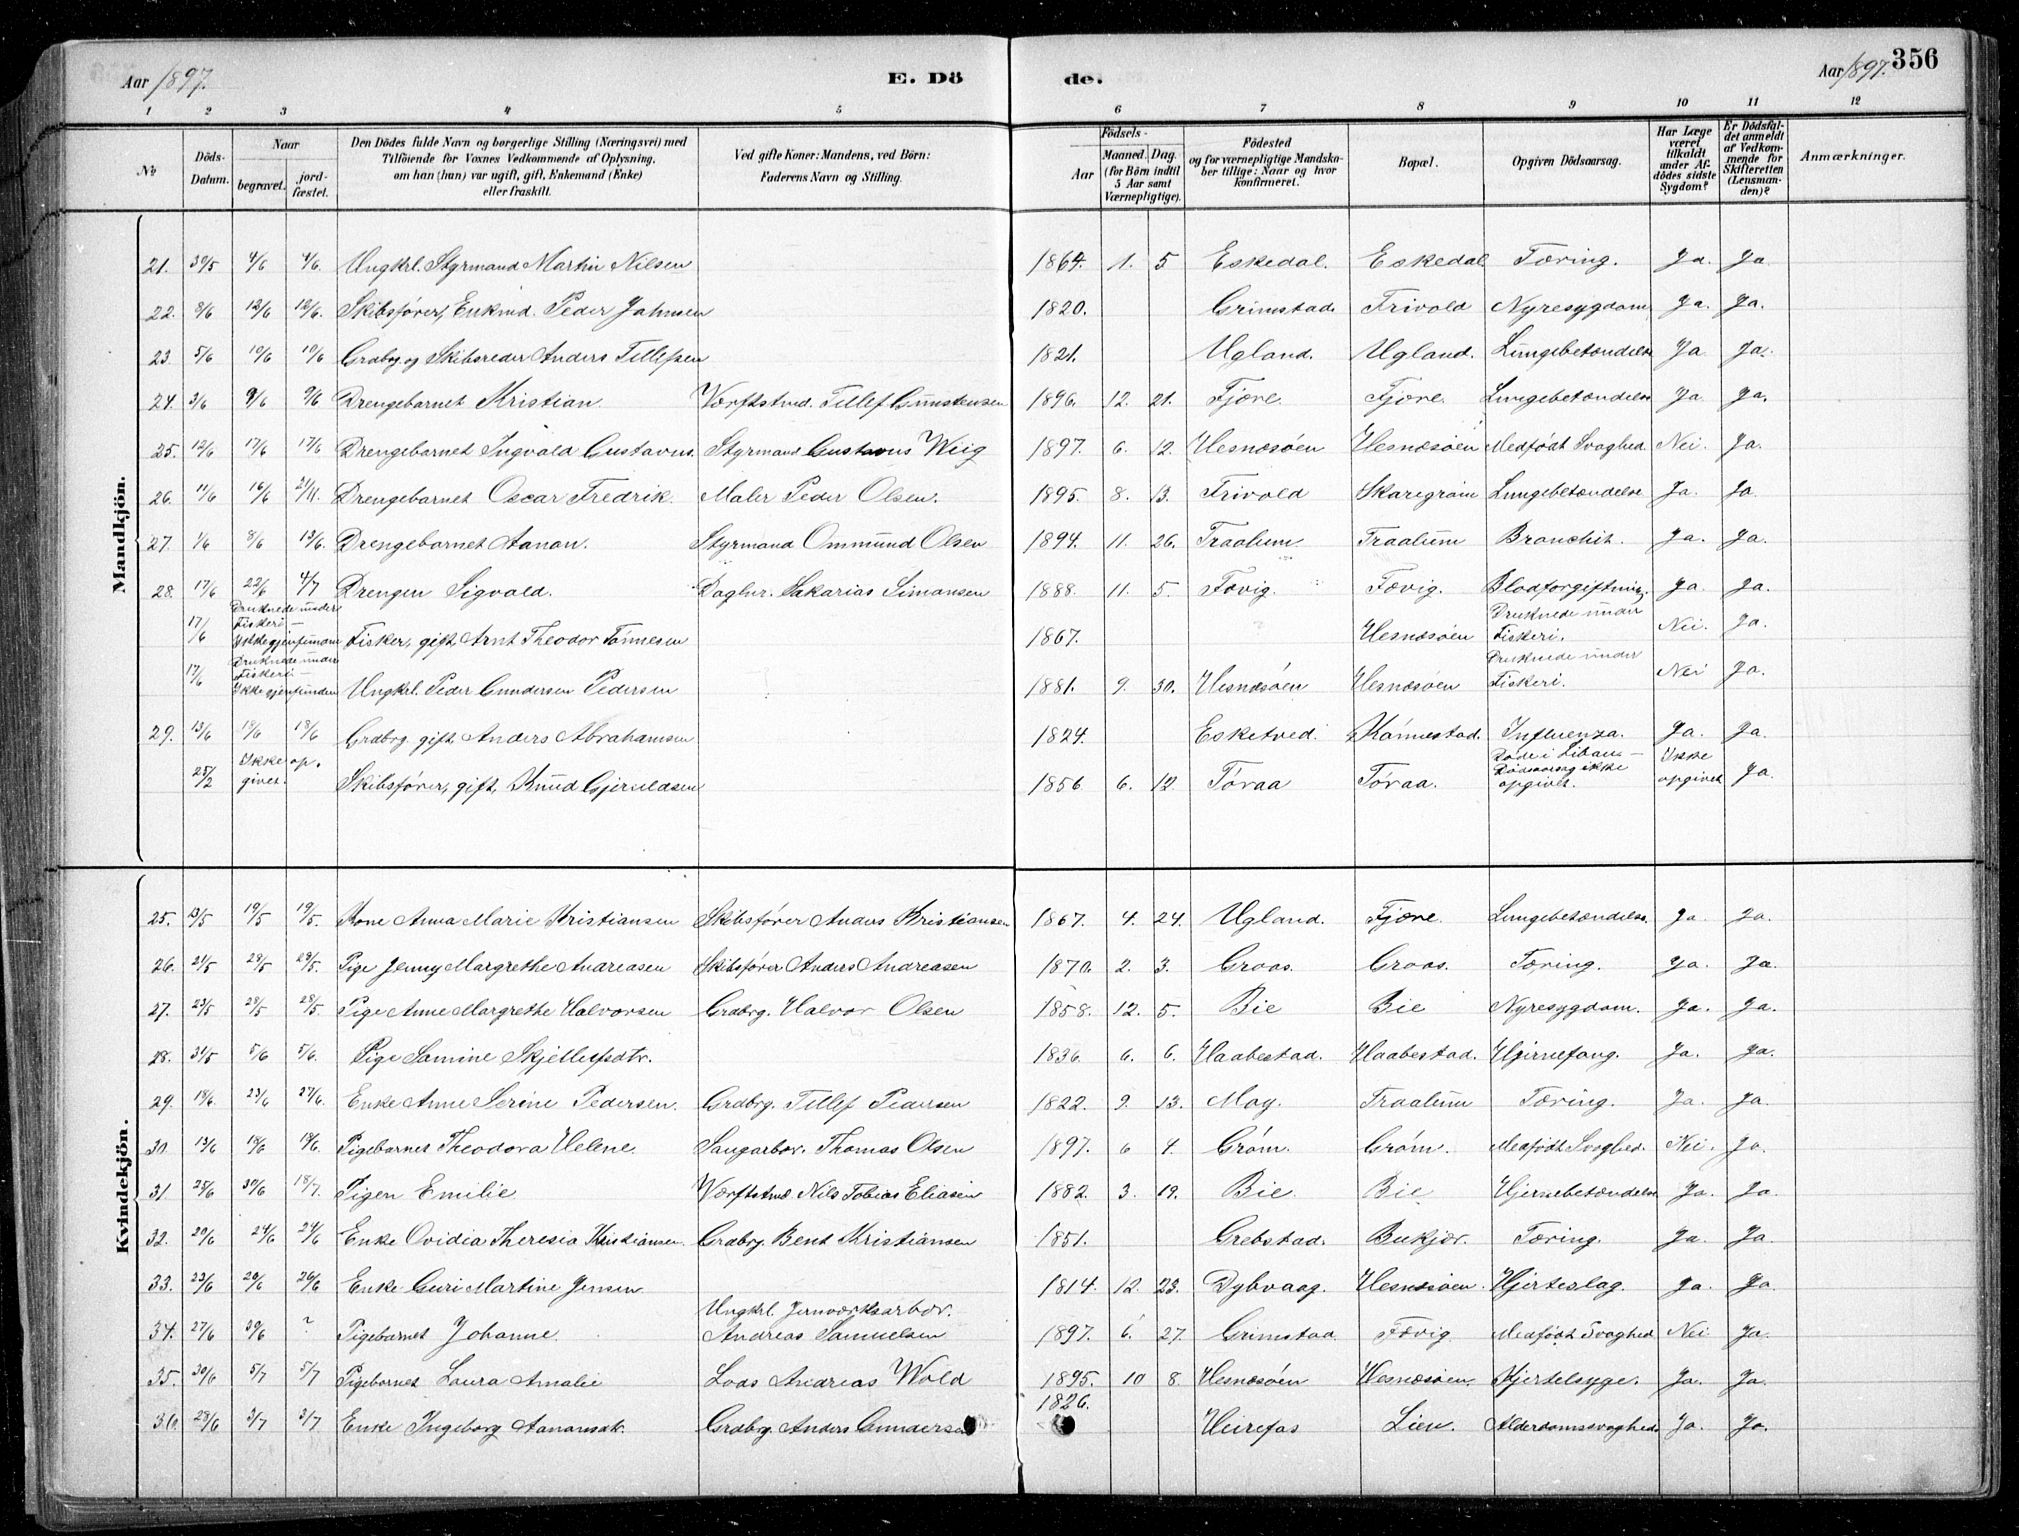 Aar 1897. E. Dö de. Aar 1897. 356
1 2 3 4 5 6 7 8 9 10 11 12
No Döds-Datum. Naar begravet. jord-fæstet. Den Dödes fulde Navn og borgerlige Stilling (Næringsvei) med Tilföiende for Voxnes Vedkommende af Oplysning, om han (hun) var ugift, gift, Enkemand (Enke) eller fraskilt. Ved gifte Koner: Mandens, ved Börn: Faderens Navn og Stilling. Födsels- Aar Maaned. Dag. (for Börn indtil 5 Aar samt Værnepligtige). Födested og for værnepligtige Mandska-ber tillige: Naar og hvor konfirmeret. Bopæl. Opgiven Dödsaarsag. Har Læge været tilkaldt under Af-dödes sidste Sygdom? Er Dödsfal-det anmeldt af Vedkom-mende for Skifteretten (Lensman-den)? Anmærkninger.
Mandkjön.
21. 30/5 4/6 4/6. Ungkrl. Styrmand Martin Nilsen 1864. 11. 5 Eskedal. Eskedal Tæring. Ja. Ja
22. 8/6 12/6 12/6. Skibsfører, Enkmd. Peder Jahnsen 1820. Grimstad Frivold Nyresygdom Ja. Ja.
23 5/6 10/6 10/6 Grdbrg. og Skibsreder Anders Tellefsen 1821. Ugland. Ugland. Lungebetændelse Ja Ja.
24. 3/6 9/6 9/6 Drengebarnet Kristian Værftstmd. Tellef Gunstensen 1896. 12. 21. Fjære Fjære. Lungebetændelse Ja Ja.
25. 12/6 17/6 17/6 Drengebarnet Ingvald Gustavus. Styrmand Gustavus Wiig 1897. 6. 12. Hesnæsøen Hesnæsøen Medfødt Svaghed Nei. Ja.
26. 11/6 16/6 21/11. Drengebarnet Oscar Fredrik. Maler Peder Olsen. 1895. 8. 13. Frivold Skaregrøm Lungebetændelse Ja. Ja.
27. 1/6 8/6 13/6. Drengebarnet Aanon. Styrmand Ommund Olsen 1894. 11. 26. Traalum Traalum Bronchit. Ja. Ja.
28. 17/6 22/6 4/7 Drengen Sigvald. Daglnr. Sakarias Simonsen 1888. 11. 5. Fævig. Fævig. Blodforgiftning. Ja. Ja.
17/6 Druknede under Fiskeri — Ikke gjenfunden Fisker, gift, Arnt Theodor Tønnesen 1867. Hesnæsøen Druknede under Fiskeri. Nei. Ja.
17/6 Druknede under Fiskeri — Ikke gjenfunden Ungkrl. Peder Gundersen Pedersen 1881. 9. 30. Hesnæsøen Hesnæsøen Druknede under Fiskeri. Nei Ja.
29. 13/6 18/6 18/6 Grdbrg. gift, Anders Abrahamsen 1824. Esketved. Rønnestad. Influenza. Ja. Ja.
25/2 Ikke op. givet. Skibsfører, gift, Knud Gjeruldsen 1856 6. 12. Tøraa Tøraa. Døde i Libau — Dødsaarsag ikke opgivet. Ikke opgivet Ja.
Kvindekjön.
25. 13/5 19/5 19/5. Kone Anna Marie Kristiansen Skibsfører Anders Kristiansen 1867. 4. 24. Ugland. Fjære. Lungebetændelse. Ja. Ja.
26. 21/5 28/5 29/5. Pige Jenny Margrethe Andreasen Skibsfører Anders Andreasen 1870. 2. 3. Groos. Groos. Tæring. Ja. Ja.
27. 23/5 28/5 28/5. Pige Anne Margrethe Halvorsen Grdbrg. Halvor Olsen 1858. 12. 5. Bie Bie Nyresygdom. Ja. Ja.
28. 31/5 5/6 5/6. Pige Samine Skjellefsdtr. 1836 6. 6. Haabestad. Haabestad. Hjernefang. Ja. Ja.
29. 18/6. 23/6 27/6. Enke Anne Serine Pedersen. Grdbrg. Tellef Pedersen 1822. 9. 13. Moy. Traalum Tæring. Ja. Ja.
30. 13/6 18/6 18/6. Pigebarnet Theodora Helene. Saugarbdr. Thomas Olsen 1897. 6 4. Grøm. Grøm. Medfødt Svaghed. Nei. Ja.
31 25/6 30/6 18/7. Pigen Emilie Værftstmd Nils Tobias Eliasen 1882. 3. 19. Bie. Bie Hjernebetændelse Ja. Ja.
32. 20/6 24/6 24/6 Enke Ovidia Theresia Kristiansen. Grdbrg. Bent Kristiansen 1851. Grebstad. Bukjær. Tæring. Ja. Ja
33. 23/6 26/6 26/6 Enke Guri Martine Jensen 1814. 12. 23. Dybvaag Hesnæsøen. Hjerteslag. Ja. Ja.
34. 27/6 30/6 ? Pigebarnet Johanne. Ungkrl. Jernværksarbdr. Andreas Samuelsen 1897. 6. 27. Grimstad Fævig. Medfødt Svaghed Nei Ja.
35. 30/6 5/7 5/7 Pigebarnet Laura Amalie Lods Andreas Wold 1895. 10 8. Hesnæsøen Hesnæsøen. Hjertesyge. Ja. Ja.
36. 28/6 3/7 3/7 Enke Ingeborg Aanonsdtr. Grdbrg. Anders Gundersen 1826. Heirefos Lien. Alderdomssvaghed. Ja. Ja.